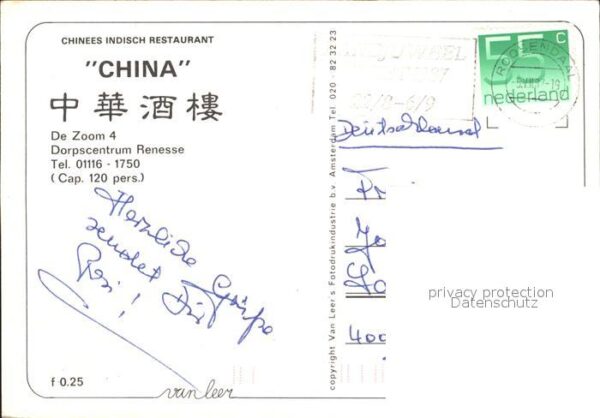 CHINEES INDISCH RESTAURANT
"CHINA"
中華酒樓
De Zoom 4
Dorpscentrum Renesse
Tel. 01116 - 1750
( Cap. 120 pers.)
Herzliche Grüße
sendet Dir
Resi!
f 0.25
van leer
copyright Van Leer's Fotodrukindustrie b.v. Amsterdam Tel. 020 - 82 32 23
22/8-6/9
ROOSENDAAL
55 c
nederland
Deutschland
Fr
400
privacy protection
Datenschutz